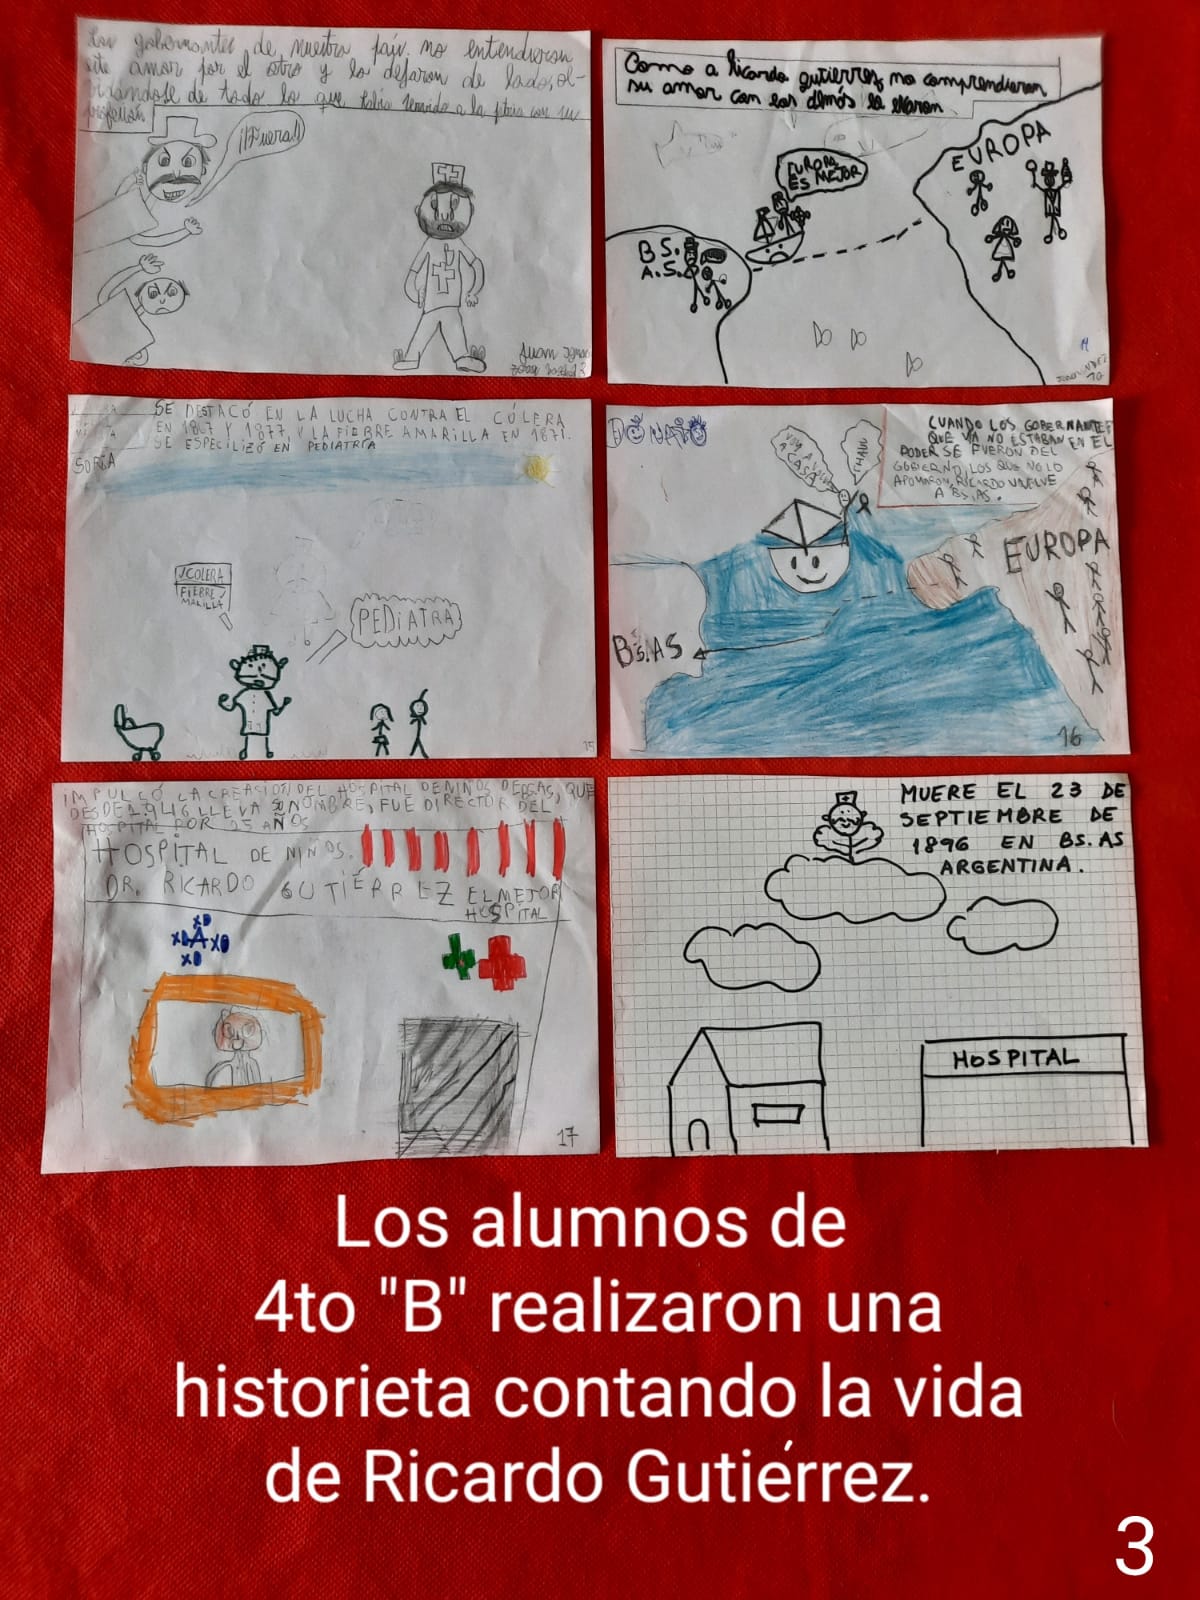 Los gobernantes de nuestro país no entendieron
este amor por el otro y lo dejaron de lado, ol-
vidándose de todo lo que había servido a la patria con su
profesión
¡¡Fuera!!
Juan Ignacio
Como a Ricardo gutierrez no comprendieron
su amor con los demás lo
EUROPA
EUROPA
ES MEJOR
BS.
A.S.
SE DESTACÓ EN LA LUCHA CONTRA EL CÓLERA
EN 1867 Y 1877 Y LA FIEBRE AMARILLA EN 1871.
SE ESPECILIZÓ EN PEDIATRÍA
SORIA
COLERA
FIEBRE
MARILLA
PEDIATRA
15
DONATO
CUANDO LOS GOBERNANTES
QUE YA NO ESTABAN EN EL
PODER SE FUERON DEL
GOBIERNO, LOS QUE NO LO
APOMARON, RICARDO VUELVE
A BS.AS.
VOY A
CASA
CHAU
EUROPA
BS.AS
16
IMPULSÓ LA CREACIÓN DEL HOSPITAL DE NIÑOS DE BSAS, QUE
DESDE 1.946 LLEVA SU NOMBRE, FUE DIRECTOR DEL
HOSPITAL POR 25 AÑOS
HOSPITAL DE NIÑOS.
DR. RICARDO GUTIÉRREZ EL MEJOR
HOSPITAL
XD
XD A XD
XD
17
MUERE EL 23 DE
SEPTIEMBRE DE
1896 EN BS.AS
ARGENTINA.
HOSPITAL
Los alumnos de
4to "B" realizaron una
historieta contando la vida
de Ricardo Gutiérrez.
3